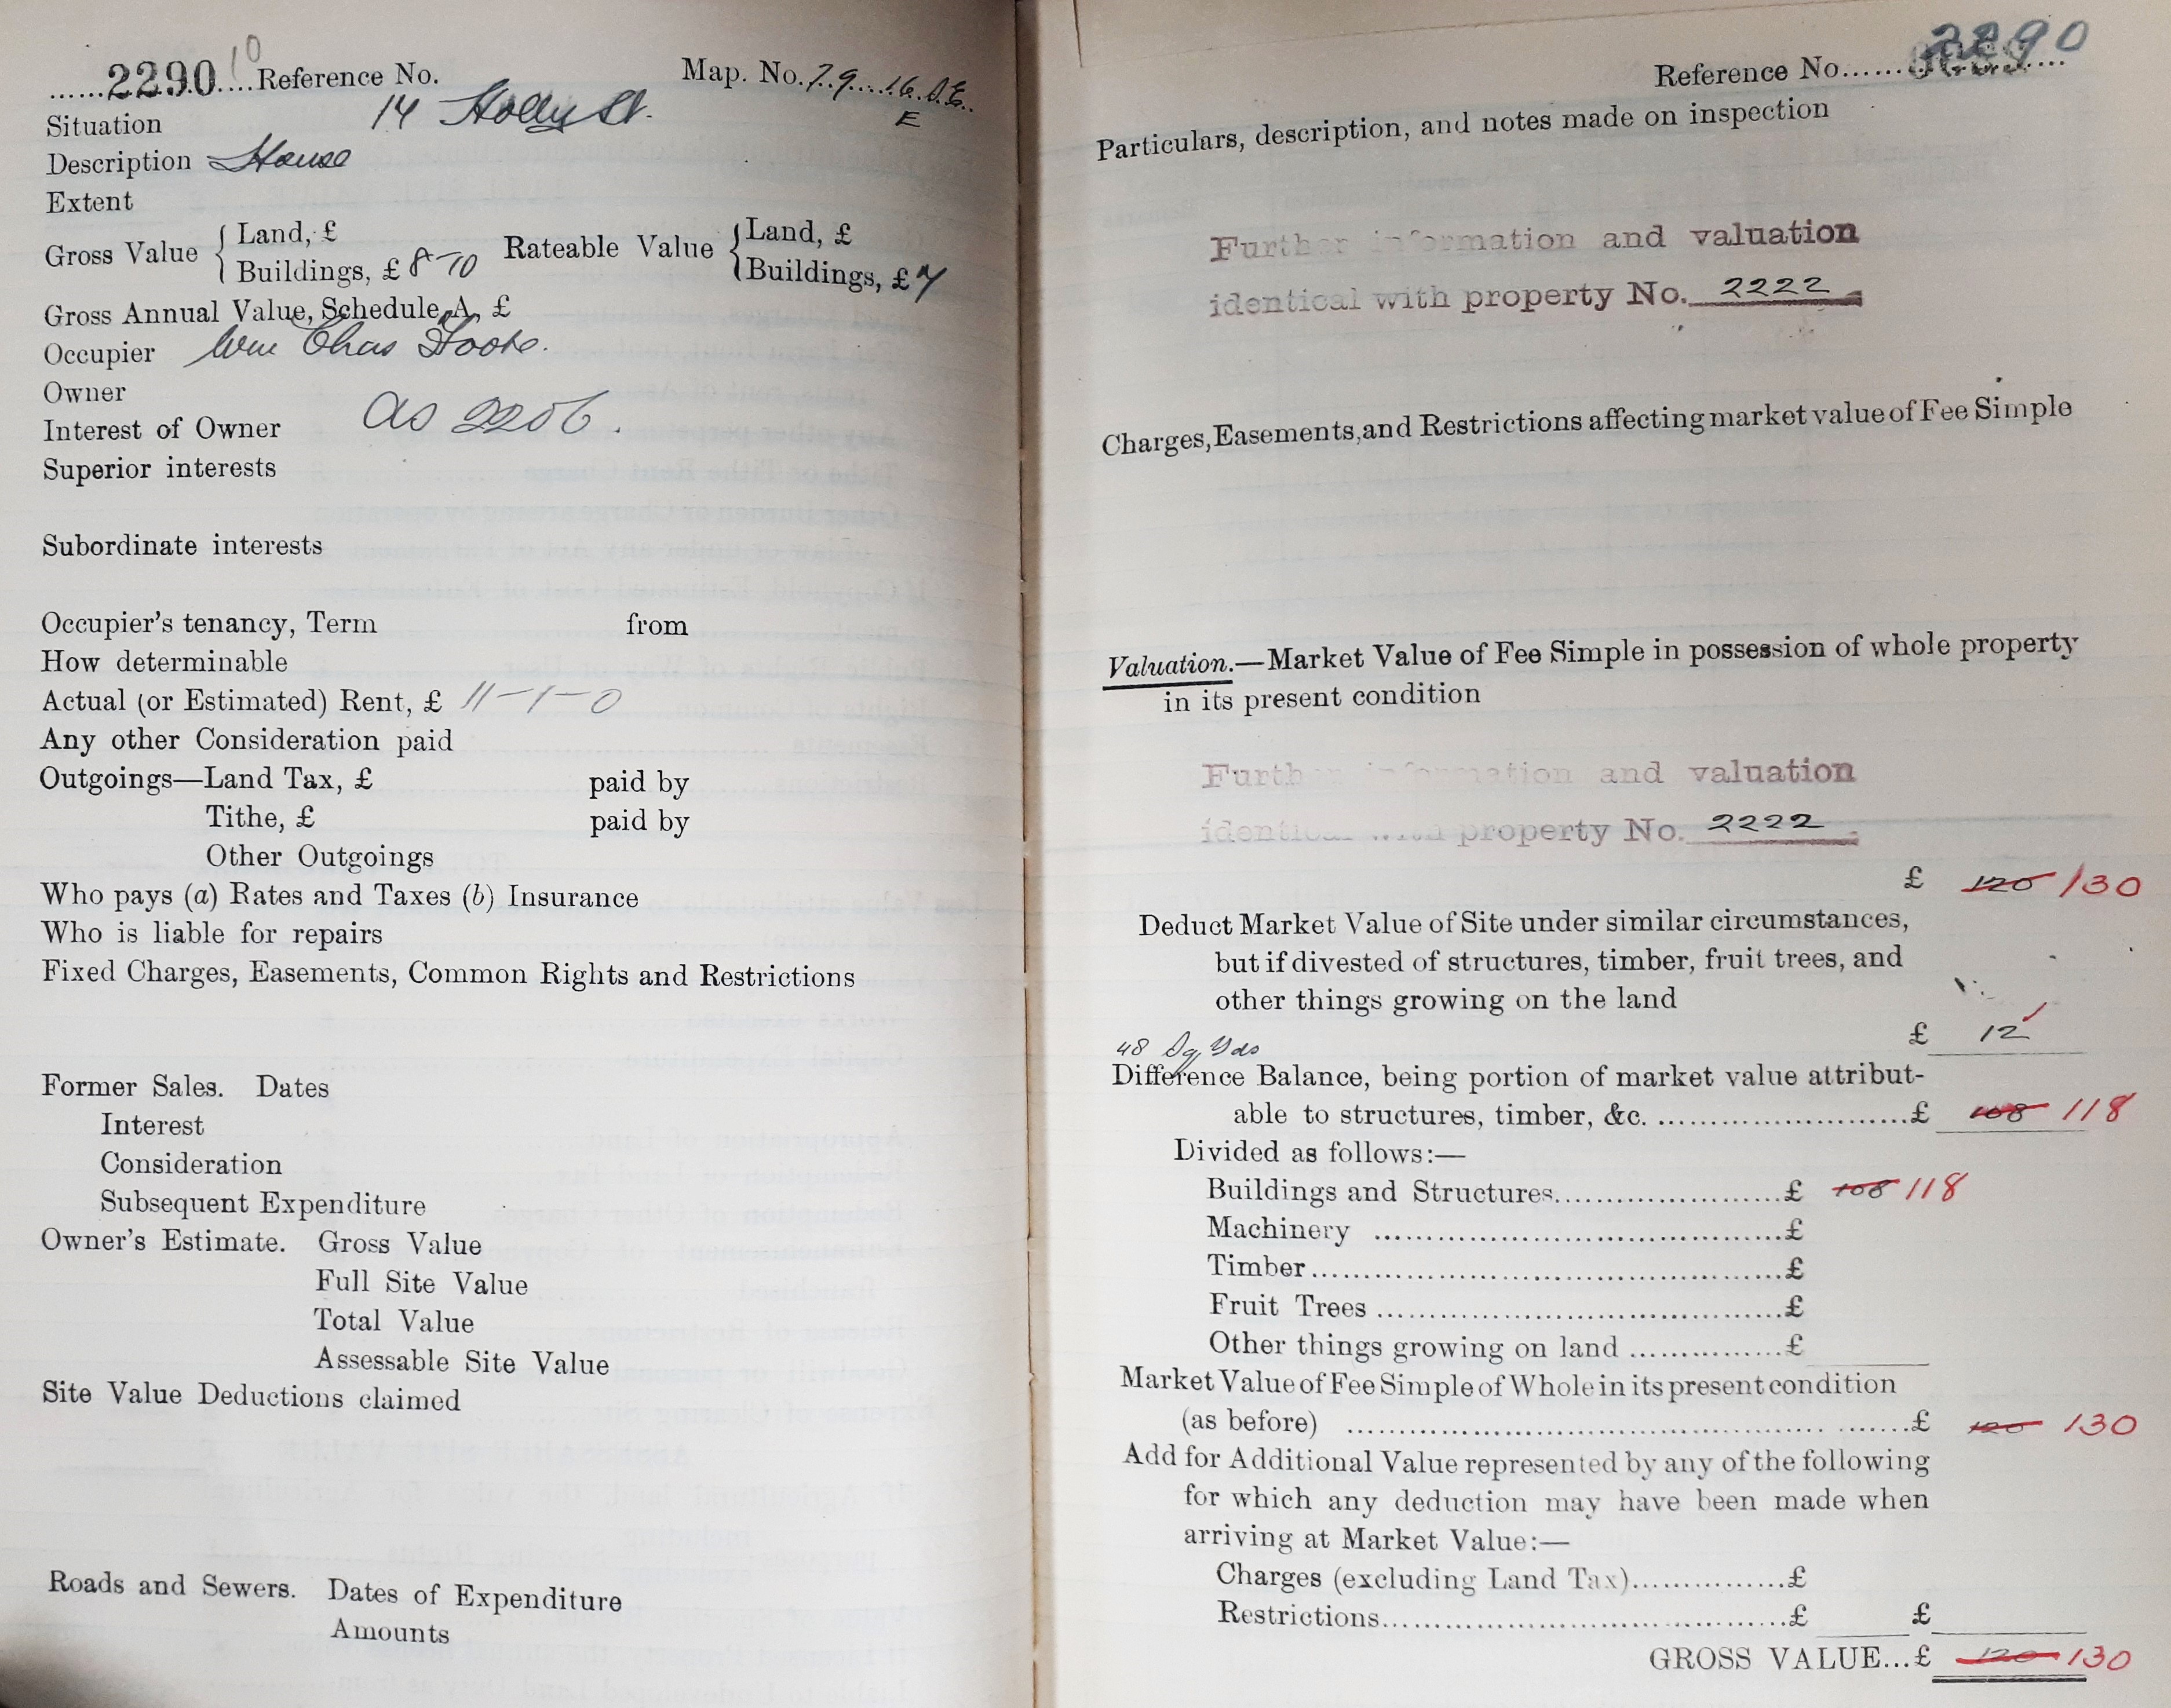 ......2290....Reference No. 10 Map. No. 79....16.S.E..
E
Situation 14 Holly St.
Description House
Extent
Gross Value { Land, £ Rateable Value { Land, £
Buildings, £ 8-10 Buildings, £ 7
Gross Annual Value, Schedule A, £
Occupier Wm Chas Foote.
Owner
Interest of Owner as 2206.
Superior interests
Subordinate interests
Occupier's tenancy, Term from
How determinable
Actual (or Estimated) Rent, £ 11-1-0
Any other Consideration paid
Outgoings—Land Tax, £ paid by
Tithe, £ paid by
Other Outgoings
Who pays (a) Rates and Taxes (b) Insurance
Who is liable for repairs
Fixed Charges, Easements, Common Rights and Restrictions
Former Sales. Dates
Interest
Consideration
Subsequent Expenditure
Owner's Estimate. Gross Value
Full Site Value
Total Value
Assessable Site Value
Site Value Deductions claimed
Roads and Sewers. Dates of Expenditure
Amounts
Reference No...... 2290
Particulars, description, and notes made on inspection
Further information and valuation
identical with property No. 2222
Charges, Easements, and Restrictions affecting market value of Fee Simple
Valuation.—Market Value of Fee Simple in possession of whole property
in its present condition
Further information and valuation
identical with property No. 2222
£ 120 130
Deduct Market Value of Site under similar circumstances,
but if divested of structures, timber, fruit trees, and
other things growing on the land
£ 12
48 Sq Yds
Difference Balance, being portion of market value attribut-
able to structures, timber, &c. ..........................£ 108 118
Divided as follows:—
Buildings and Structures.......................£ 108 118
Machinery ..........................................£
Timber................................................£
Fruit Trees .........................................£
Other things growing on land ................£
Market Value of Fee Simple of Whole in its present condition
(as before) ..........................................................£ 120 130
Add for Additional Value represented by any of the following
for which any deduction may have been made when
arriving at Market Value:—
Charges (excluding Land Tax)................£
Restrictions...........................................£ £
GROSS VALUE...£ 120 130